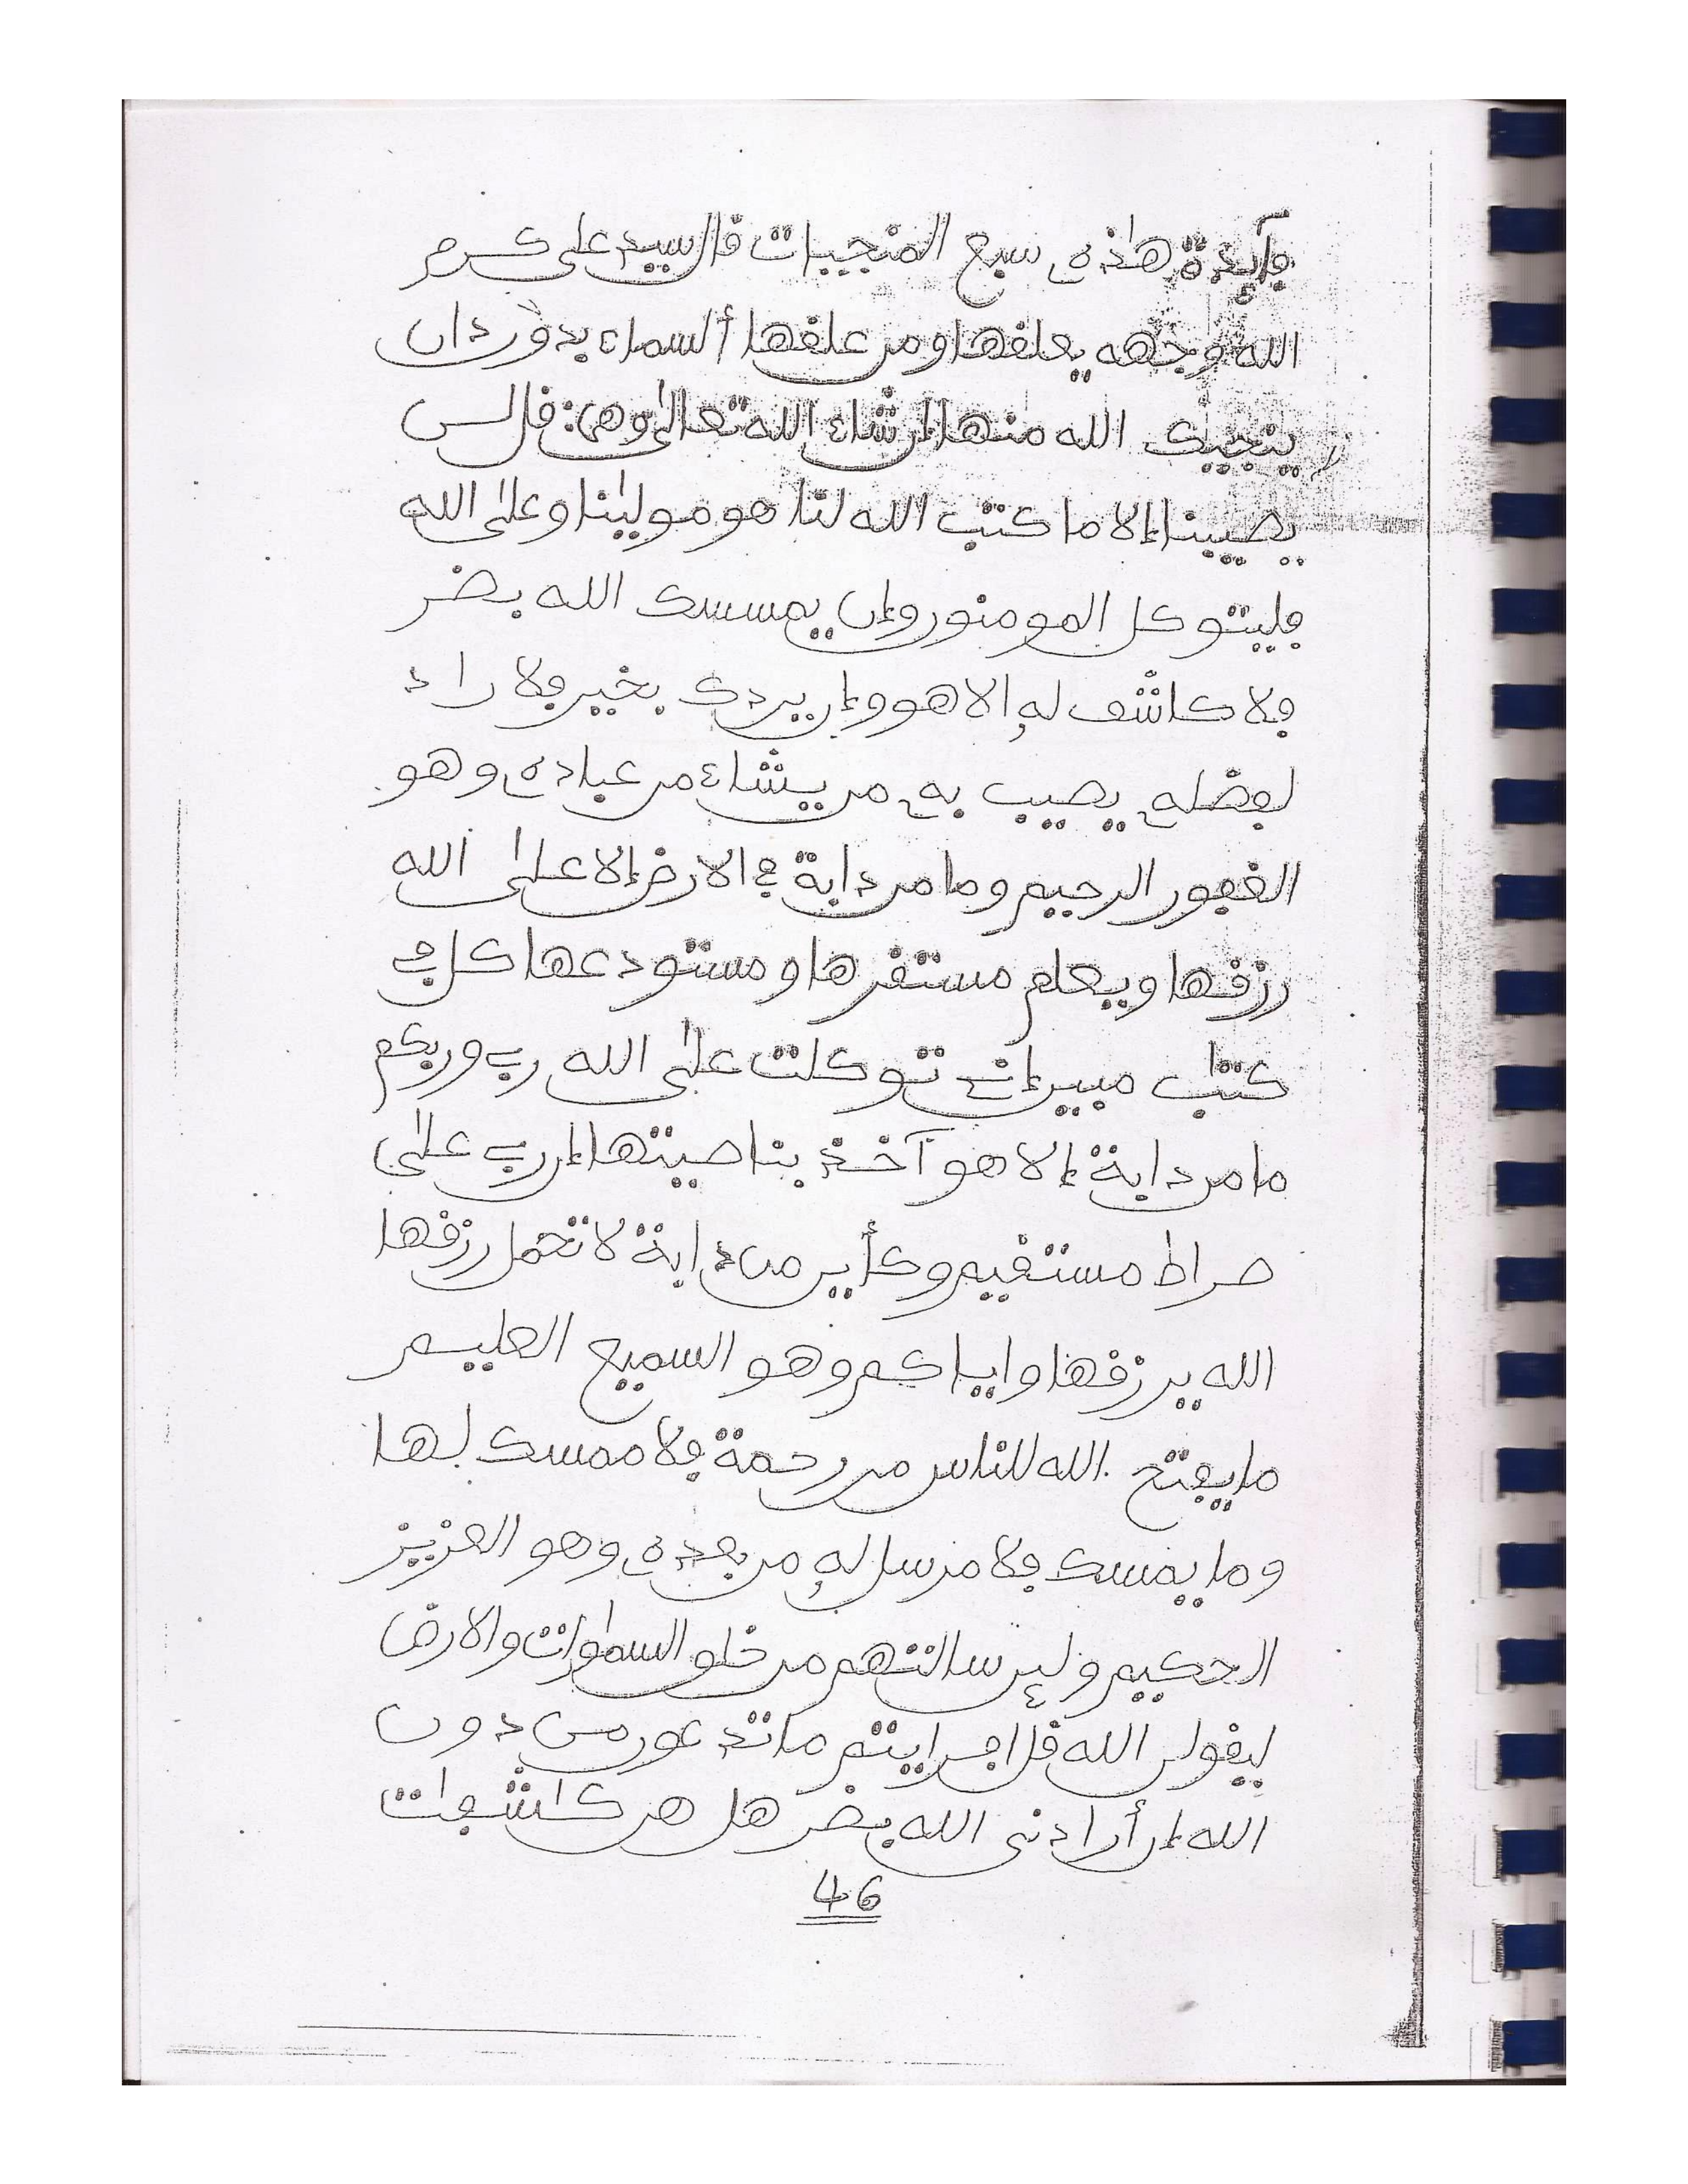 فآيدة هاذه سبع المنجيات قال سيد على كرم
الله وجهه يعلقها ومن علقها ألسماء بدوردان
ينجيك الله منها إن شاء الله تعالى وهى: قل لن
يصيبنا إلا ما كتب الله لنا هو موليٰنا وعلى الله
فليتوكل المومنون وإن يمسسك الله بضر
فلا كاشف له إلا هو وإن يردك بخير فلا راد
لفضله يصيب به من يشاء من عباده وهو
الغفور الرحيم وما من دابة في الارض إلا على الله
رزقها ويعلم مستقرها ومستودعها كل في
كتٰب مبين إني توكلت على الله ربي وربكم
ما من دابة إلا هو آخذ بناصيتها إن ربي على
صراط مستقيم وكأين من دابة لا تحمل رزقها
الله يرزقها واياكم وهو السميع العليم
ما يفتح الله للناس من رحمة فلا ممسك لها
وما يمسك فلا مرسل له من بعده وهو العزيز
الحكيم ولئن سالتهم من خلق السمٰوٰت والارض
ليقولن الله قل افرايتم ما تدعون من دون
الله إن أرادنى الله بضر هل هن كٰشفٰت
46